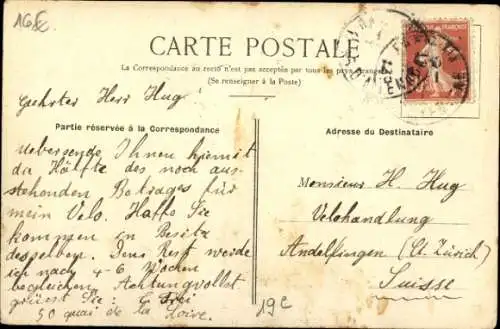 16 fc
CARTE POSTALE
La Correspondance au recto n'est pas acceptée par tous les pays étrangers
(Se renseigner à la Poste)
Geehrter Herr Hug!
Partie réservée à la Correspondance
Adresse du Destinataire
Uebersende Ihnen hiemit
da Hälfte des noch aus-
stehenden Betrages für
mein Velo. Hoffe Sie
kommen in Besitz
desselben. Den Rest werde
ich nach 4-6 Wochen
begleichen. Achtungvollst
grüsst Sie: C. Frei
50 quai de la Loire.
Monsieur H. Hug
Velohandlung
Andelfingen (Ct. Zürich)
Suisse
19e